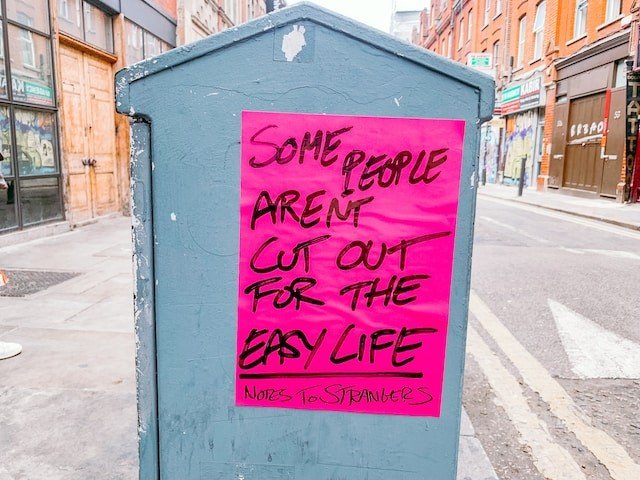 SOME PEOPLE
ARENT
CUT OUT
FOR THE
EASY LIFE
NOTES TO STRANGERS
TATTOO